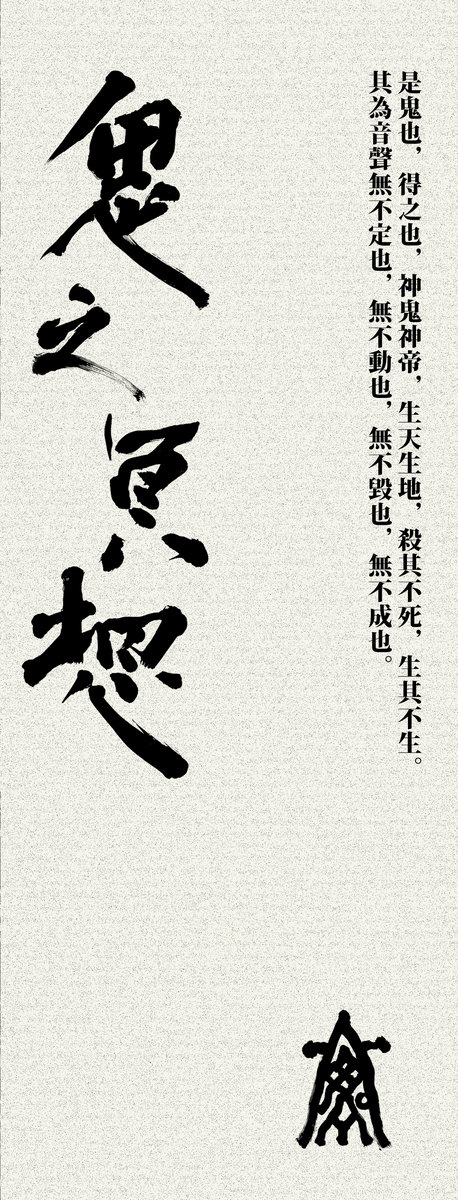 是鬼也，得之也，神鬼神帝，生天生地，殺其不死，生其不生。
其為音聲無不定也，無不動也，無不毀也，無不成也。
鬼之冥想